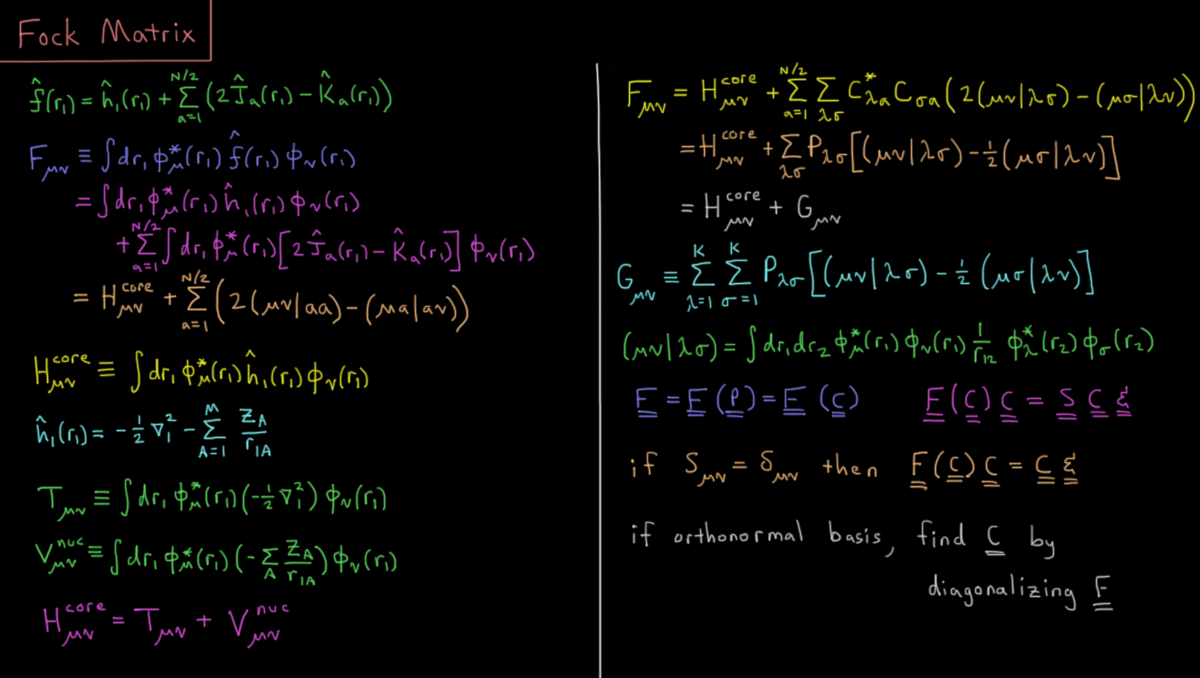 Fock Matrix
f̂(r₁) = ĥ₁(r₁) + Σ_{a=1}^{N/2} (2Ĵₐ(r₁) − K̂ₐ(r₁))
F_μν ≡ ∫dr₁ ϕ*_μ(r₁) f̂(r₁) ϕ_ν(r₁)
= ∫dr₁ ϕ*_μ(r₁) ĥ₁(r₁) ϕ_ν(r₁)
+ Σ_{a=1}^{N/2} ∫dr₁ ϕ*_μ(r₁) [2Ĵₐ(r₁) − K̂ₐ(r₁)] ϕ_ν(r₁)
= H_μν^core + Σ_{a=1}^{N/2} (2(μν|aa) − (μa|aν))
H_μν^core ≡ ∫dr₁ ϕ*_μ(r₁) ĥ₁(r₁) ϕ_ν(r₁)
ĥ₁(r₁) = −½ ∇₁² − Σ_{A=1}^{M} Z_A/r_{1A}
T_μν ≡ ∫dr₁ ϕ*_μ(r₁) (−½ ∇₁²) ϕ_ν(r₁)
V_μν^nuc ≡ ∫dr₁ ϕ*_μ(r₁) (−Σ_A Z_A/r_{1A}) ϕ_ν(r₁)
H_μν^core = T_μν + V_μν^nuc
F_μν = H_μν^core + Σ_{a=1}^{N/2} Σ_{λσ} C*_λa C_σa (2(μν|λσ) − (μσ|λν))
= H_μν^core + Σ_{λσ} P_λσ [(μν|λσ) − ½ (μσ|λν)]
= H_μν^core + G_μν
G_μν ≡ Σ_{λ=1}^{K} Σ_{σ=1}^{K} P_λσ [(μν|λσ) − ½ (μσ|λν)]
(μν|λσ) = ∫dr₁dr₂ ϕ*_μ(r₁) ϕ_ν(r₁) 1/r₁₂ ϕ*_λ(r₂) ϕ_σ(r₂)
F = F(P) = F(C) F(C) C = S C ε
if S_μν = δ_μν then F(C) C = C ε
if orthonormal basis, find C by
diagonalizing F